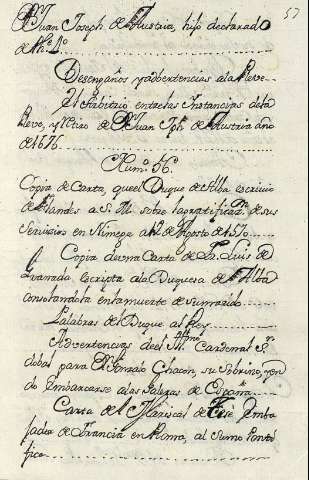 57
D.n Juan Joseph de Austria, hijo declarado
de Ph.e 4.o
Desengaños y advertencias a la Pleve
El Arbitrio entre las Instancias de la
Pleve, y Retiro de D.n Juan Jph. de Austria año
de 1676.
Num.o 76.
Copia de Carta, que el Duque de Alba escrivio
de Flandes a S. M. sobre la gratificaz.n de sus
Servicios en Nimega a 12 de Agosto de 1570.
Copia de una Carta de Fr. Luis de
Granada escripta a la Duquesa de Alba
consolandola en la muerte de su marido
Palabras del Duque al Rey
Advertencias de el Ill.mo Cardenal S.n
doval para D. Gonzalo Chacon, su Sobrino, yen
do Embarcarse a las Galeras de España
Carta de el Mariscal de Emba
jador de Francia en Roma, al Sumo Ponti
fice